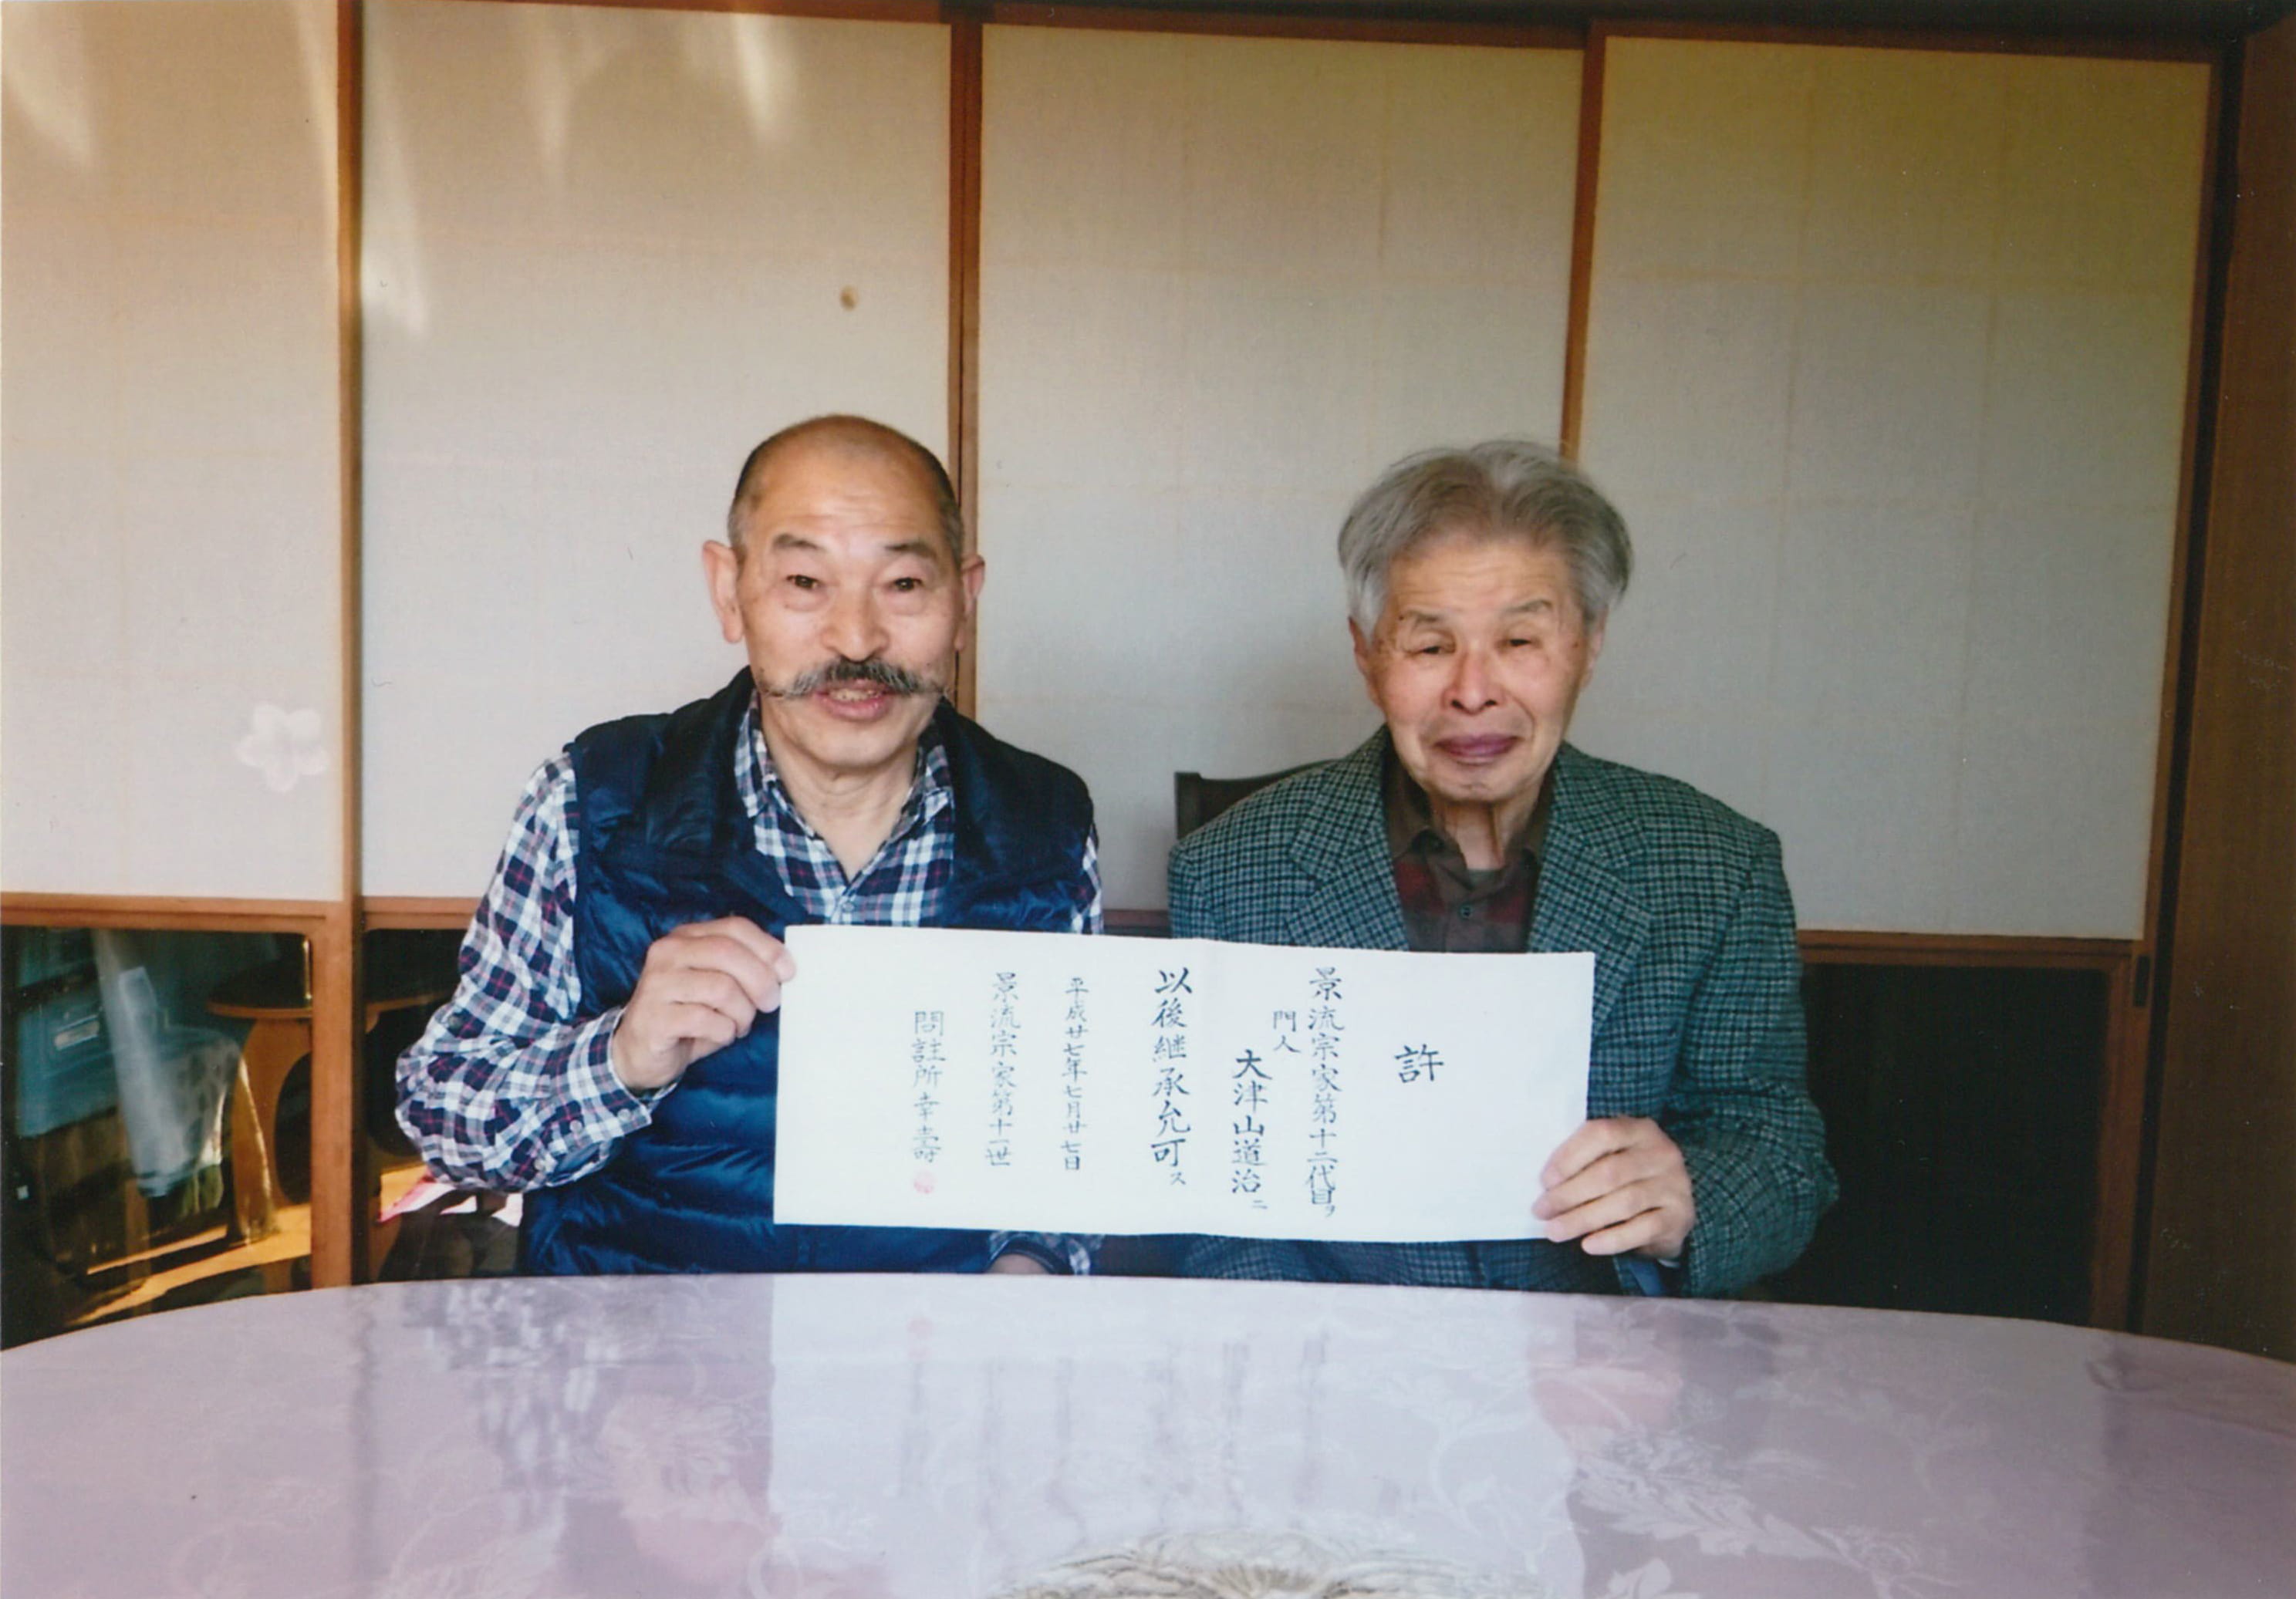 許
景流宗家第十二代目ヲ
門人
大津山道治ニ
以後継承允可ス
平成廿七年七月廿七日
景流宗家第十一世
問註所